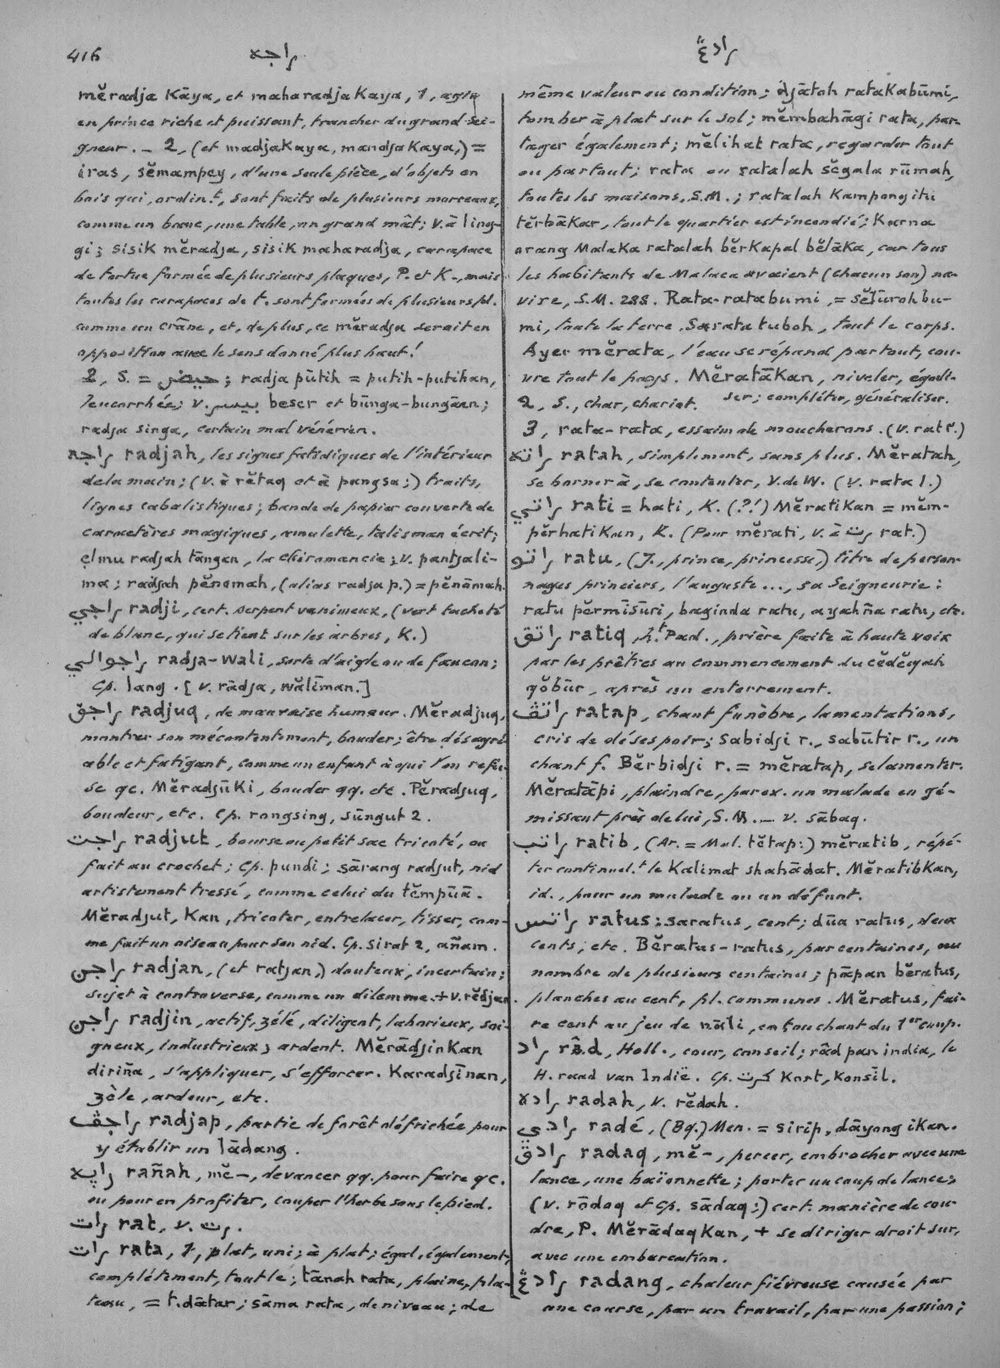 416 راجه رادڠ
mĕradja Kāya, et maharadja Kaya, 1, agir
en prince riche et puissant, trancher du grand sei-
gneur. — 2, (et madjaKaya, mandjaKaya,) =
iras, sĕmampey, d'une seule pièce, d'objets en
bois qui, ordin.t, sont faits de plusieurs morceaux,
comme un banc, une table, un grand mât; v. à ling-
gi; sisik mĕradja, sisik maharadja, carapace
de tortue formée de plusieurs plaques, P. et K-, mais
toutes les carapaces de t. sont formées de plusieurs pl.
comme un crâne, et, de plus, ce mĕradja serait en
opposition avec le sens donné plus haut!
2, S. = حيض; radja pūtih = putih-putihan,
leucorrhée; v. بيسر beser et būnga-bungāan;
radja singa, certain mal vénérien.
راجه radjah, les signes fatidiques de l'intérieur
de la main; (v. à rĕtaq et à pangsa;) traits,
lignes cabalistiques; bande de papier couverte de
caractères magiques, amulette, talisman écrit;
elmu radjah tāngan, la chiromancie; v. pantjali-
ma; radjah pĕnamah, (alias radja p.) = pĕnāmah.
راجي radji, cert. serpent venimeux, (vert tacheté
de blanc, qui se tient sur les arbres, K.)
راجوالي radja-wali, sorte d'aigle ou de faucon;
Cp. lang. [v. rādja, wālīman.]
راجق radjuq, de mauvaise humeur. Mĕradjuq,
montrer son mécontentement, bouder; être désagré-
able et fatigant, comme un enfant à qui l'on refu-
se qc. Mĕradjūki, bouder qq. etc. Pĕradjuq,
boudeur, etc. Cp. rongsing, sūngut 2.
راجت radjut, bourse ou petit sac tricoté, ou
fait au crochet; Cp. pundi; sārang radjut, nid
artistement tressé, comme celui du tĕmpūā.
Mĕradjut, Kan, tricoter, entrelacer, tisser, com-
me fait un oiseau pour son nid. Cp. sirat 2, añam.
راجن radjan, (et ratjan,) douteux, incertain;
sujet à controverse, comme un dilemme. + v. rĕdjan.
راجن radjin, actif, zélé, diligent, laborieux, soi-
gneux, industrieux; ardent. MĕrādjinKan
diriña, s'appliquer, s'efforcer. Karadjīnan,
zèle, ardeur, etc.
راجڤ radjap, partie de forêt défrichée pour
y établir un lādang.
راڽه rañah, mĕ-, devancer qq. pour faire qc.
ou pour en profiter, couper l'herbe sous le pied.
رات rat, v. رت.
رات rata, 1, plat, uni; à plat; égal, également,
complètement, tout le; tānah rata, plaine, pla-
teau, = t. dātar; sāma rata, de niveau; de
même valeur ou condition; djātoh rataKabūmi,
tomber à plat sur le sol; mĕmbahāgi rata, par-
tager également; mĕlihat rata, regarder tout
ou partout; rata ou ratalah sĕgala rūmah,
toutes les maisons, S.M.; ratalah Kampong itu
tĕrbāKar, tout le quartier est incendié; Karna
orang MalaKa ratalah bĕrKapal bĕlāka, car tous
les habitants de Malaca avaient (chacun son) na-
vire, S.M. 288. Rata-rata bumi, = sĕlūroh bu-
mi, toute la terre. Sarata tuboh, tout le corps.
Ayer mĕrata, l'eau se répand partout, cou-
vre tout le pays. MĕratāKan, niveler, égali-
2, S., char, chariot. ser; compléter, généraliser.
3, rata-rata, essaim de moucherons. (v. rat l.)
راته ratah, simplement, sans plus. Mĕratah,
se borner à, se contenter, V. de W. (v. rata 1.)
راتي rati = hati, K. (?!) MĕratiKan = mĕm-
pĕrhatiKan, K. (Pour mĕrati, v. à رت rat.)
راتو ratu, (J., prince, princesse,) titre de person-
nages princiers, l'auguste..., sa Seigneurie:
ratu pĕrmīsuri, baginda ratu, ayahña ratu, etc.
راتق ratiq, h.t Pad., prière faite à haute voix
par les prêtres au commencement du cĕdĕqah
qŏbūr, après un enterrement.
راتڤ ratap, chant funèbre, lamentations,
cris de désespoir; sabidji r., sabūtir r., un
chant f. Bĕrbidji r. = mĕratap, se lamenter.
Mĕratāpi, plaindre, par ex. un malade en gé-
missant près de lui, S.M. — v. sābaq.
راتب ratib, (Ar. = Mal. tĕtap:) mĕratib, répé-
ter continuel.t le Kalimat shahādat. MĕratibKan,
id., pour un malade ou un défunt.
راتس ratus: saratus, cent; dūa ratus, deux
cents, etc. Bĕratus-ratus, par centaines, ou
nombre de plusieurs centaines; pāpan bĕratus,
planches au cent, pl. communes. Mĕratus, fai-
re cent au jeu de nāli, en touchant du 1er coup.
راد râd, Holl., cour, conseil; râd pan india, le
H. raad van Indië. Cp. كرت Kart, Konsīl.
راده radah, v. rĕdah.
رادي radé, (Bg.) Men. = sirip, dāyong iKan.
رادق radaq, mĕ-, percer, embrocher avec une
lance, une baïonnette; porter un coup de lance;
(v. rōdoq et cp. sādaq;) cert. manière de cou-
dre, P. MĕrādaqKan, + se diriger droit sur,
avec une embarcation.
رادڠ radang, chaleur fiévreuse causée par
une course, par un travail, par une passion;